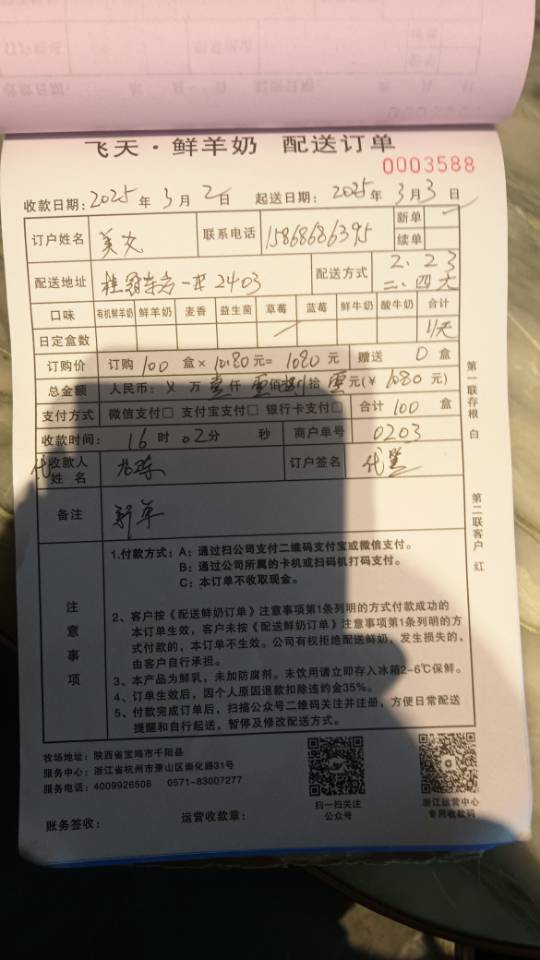 飞天·鲜羊奶 配送订单
0003588
收款日期：2025年3月2日 起送日期：2025年3月3日
订户姓名 联系电话 15868686395 新单
续单
配送地址 一幢2403 配送方式 2、2 3
二、四天
口味 有机鲜羊奶 鲜羊奶 麦香 益生菌 草莓 蓝莓 鲜牛奶 酸牛奶 合计
日定盒数 1/天
订购价 订购100盒×10.80元=1080元 赠送0盒
总金额 人民币：×万壹仟零佰捌拾零元(￥1080元)
支付方式 微信支付□ 支付宝支付□ 银行卡支付□ 合计100盒
收款时间：16时02分 秒 商户单号 0203
代收款人
姓名 订户签名 代签
备注 新单
注意事项
1.付款方式：A：通过扫公司支付二维码支付宝或微信支付。
B：通过公司所属的卡机或扫码机打码支付。
C：本订单不收取现金。
2、客户按《配送鲜奶订单》注意事项第1条列明的方式付款成功的
本订单生效，客户未按《配送鲜奶订单》注意事项第1条列明的方
式付款的，本订单不生效。公司有权拒绝配送鲜奶，发生损失的，
由客户自行承担。
3、本产品为鲜乳，未加防腐剂。未饮用请立即存入冰箱2-6℃保鲜。
4、订单生效后，因个人原因退款扣除违约金35%。
5、付款完成订单后，扫描公众号二维码关注并注册，方便日常配送
提醒和自行起送，暂停及修改配送方式。
第一联存根 白
第二联客户 红
牧场地址：陕西省宝鸡市千阳县
服务中心：浙江省杭州市萧山区崇化路31号
服务电话：4009926508 0571-83007277
扫一扫关注
公众号
浙江运营中心
专用收款码
账务签收： 运营收款章：